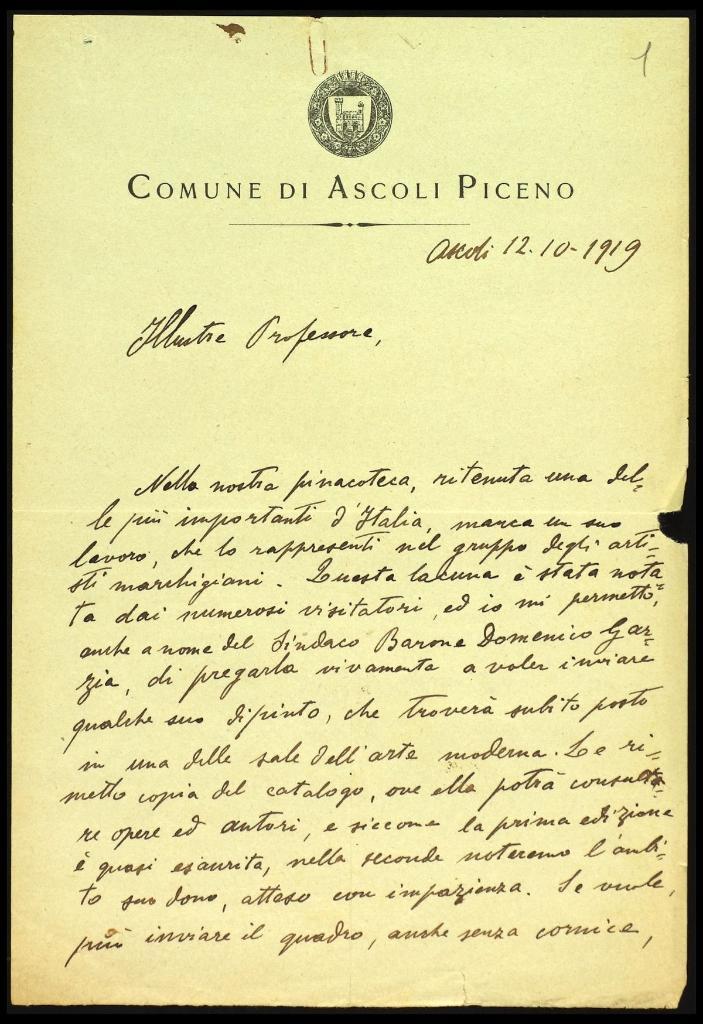 1
COMUNE DI ASCOLI PICENO
Ascoli 12-10-1919
Illustre Professore,
Nella nostra pinacoteca, ritenuta una del-
le più importanti d'Italia, manca un suo
lavoro, che lo rappresenti nel gruppo degli arti-
sti marchigiani. Questa lacuna è stata nota-
ta dai numerosi visitatori, ed io mi permetto,
anche a nome del Sindaco Barone Domenico Gar-
zia, di pregarla vivamente a voler inviare
qualche suo dipinto, che troverà subito posto
in una delle sale dell'arte moderna. Le ri-
metto copia del catalogo, ove ella potrà consulta-
re opere ed autori, e siccome la prima edizione
è quasi esaurita, nella seconda noteremo l'ambi-
to suo dono, atteso con impazienza. Se vuole,
può inviare il quadro, anche senza cornice,